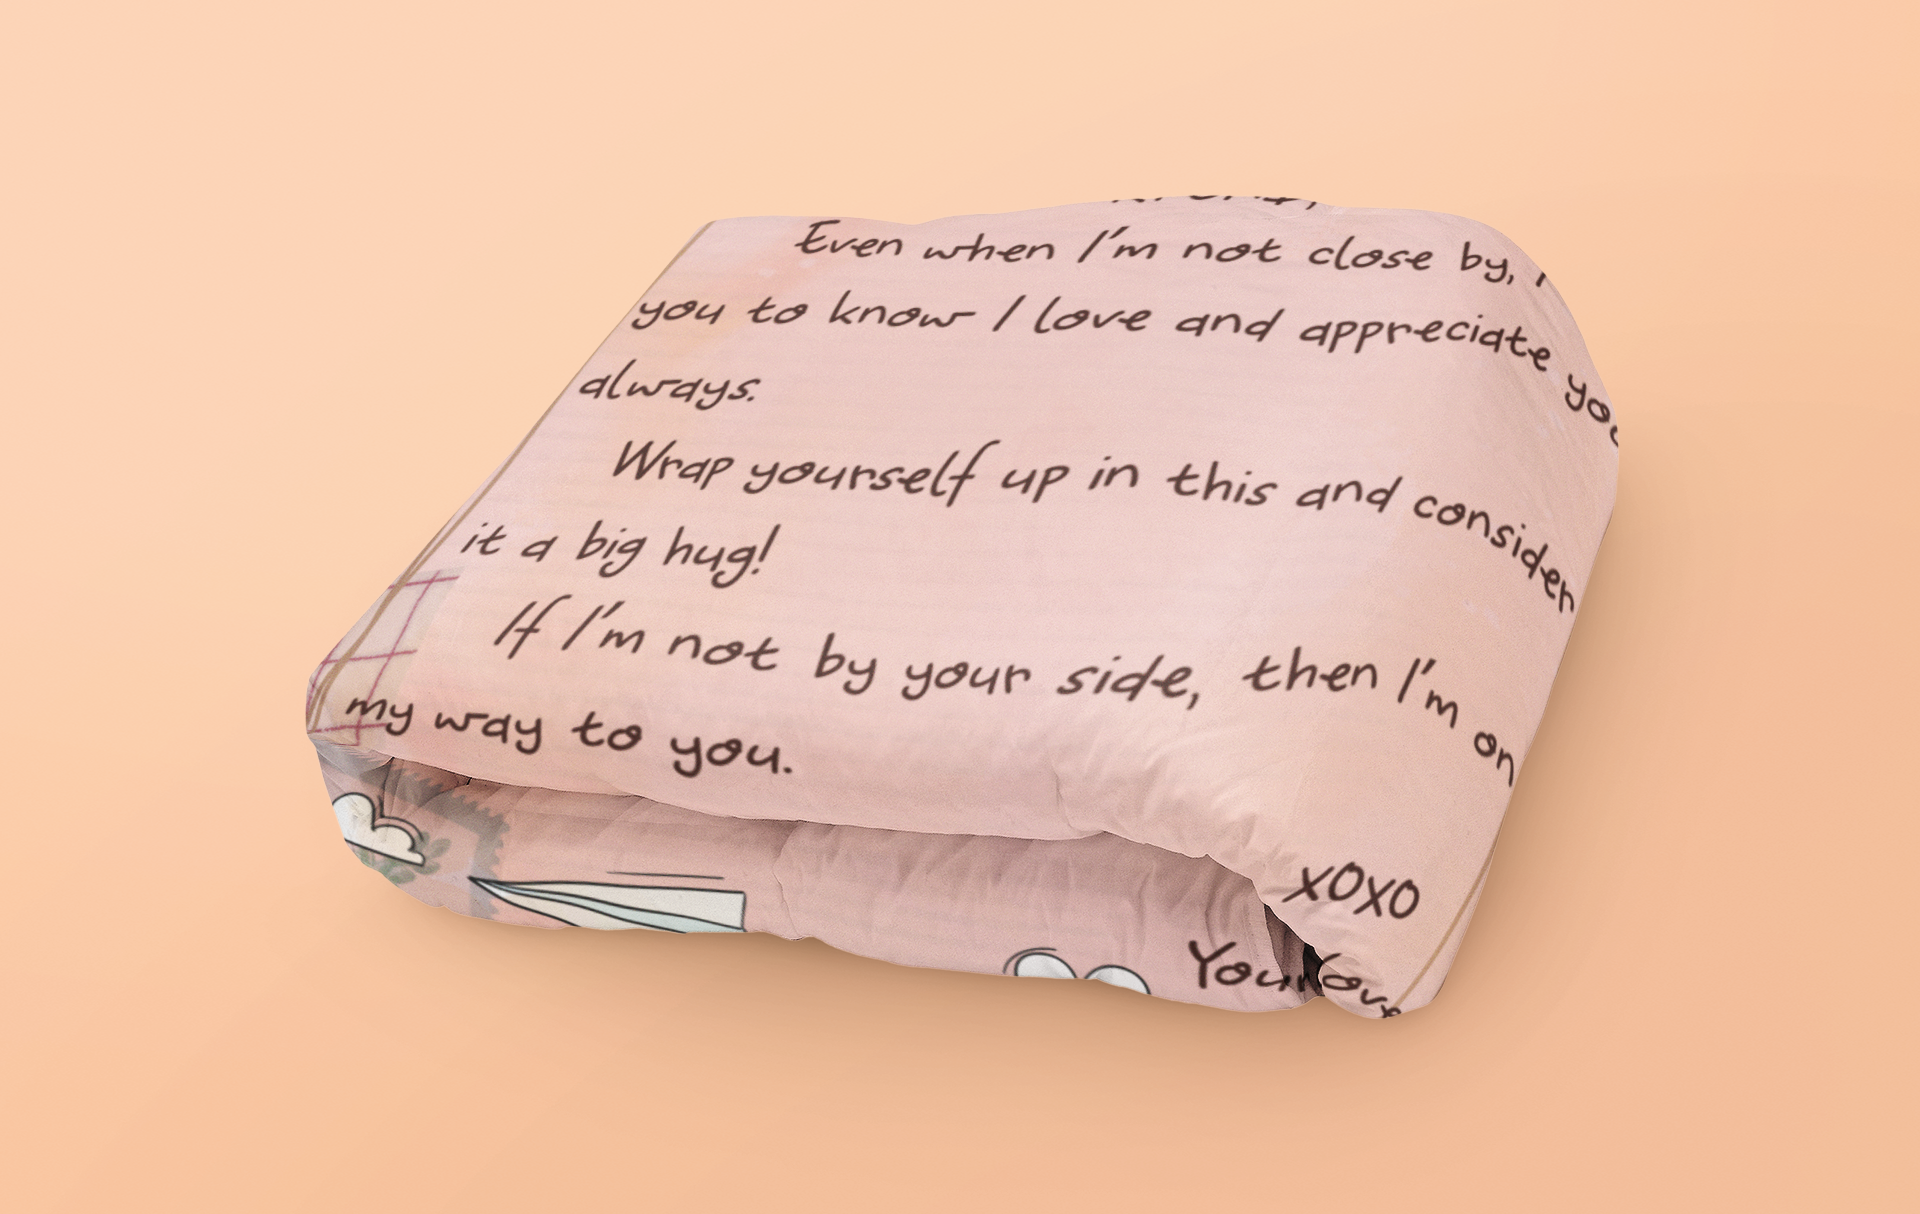 Even when I'm not close by, I
you to know I love and appreciate you
always.
Wrap yourself up in this and consider
it a big hug!
If I'm not by your side, then I'm on
my way to you.
xoxo
Your love